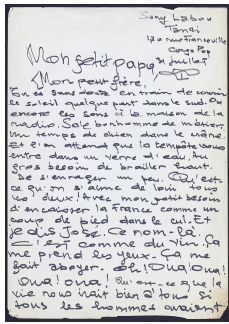 Sony Labou
Tansi
Congo Pop
31 juillet
Mon petit papa
Mon petit frère,
Tu es sans doute en train de courir
le soleil quelque part dans le sud. Ou
encore les sons et la maison de la
radio. Sale bonhomme de métier.
Un temps de chien dans le crâne
Et l'on attend que la tempête vous
entre dans un verre d'eau. Au
gros besoin de brailler haut.
De s'enrager un peu. Qu'est
ce qu'on s'aime de loin tous
les deux! Avec mon petit besoin
d'encaisser la France comme un
coup de pied dans le cul. Et
je dis José. Ce nom-là
c'est comme du vin. Ça
me prend les yeux. Ça me
fait aboyer. Oh! Oua! oua!
Oua! oua! Qu'est-ce que la
vie nous irait bien à tous si
tous les hommes avaient